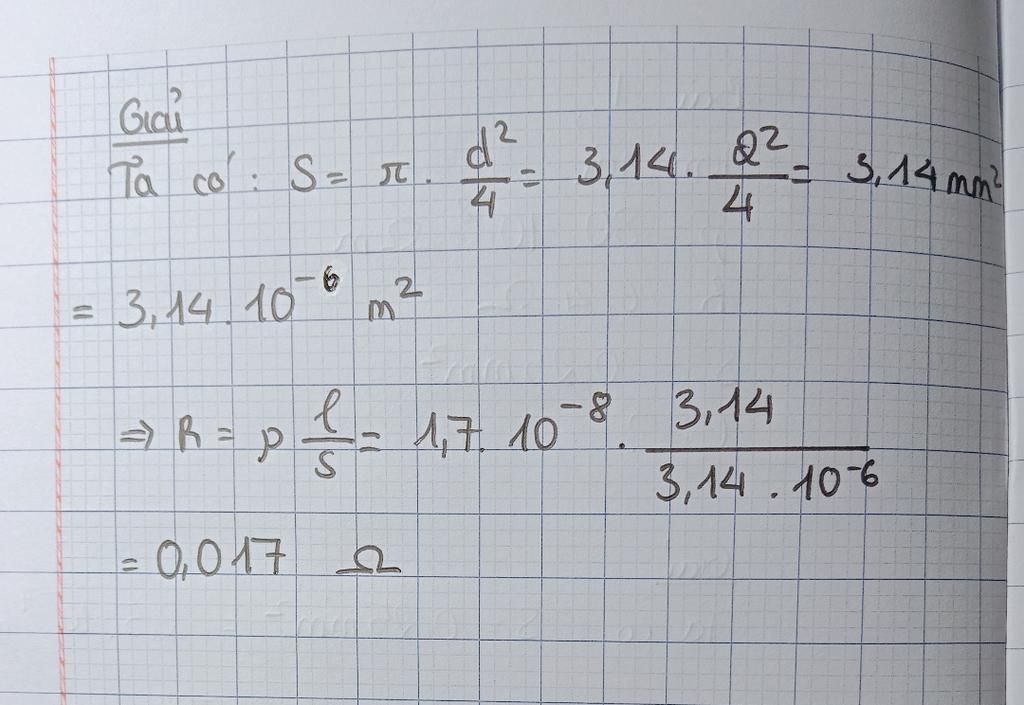 Giải
Ta có: S = π . d²/4 = 3,14 . 2²/4 = 3,14 mm²
= 3,14 . 10⁻⁶ m²
⇒ R = ρ l/S = 1,7 . 10⁻⁸ . 3,14/3,14 . 10⁻⁶
= 0,017 Ω